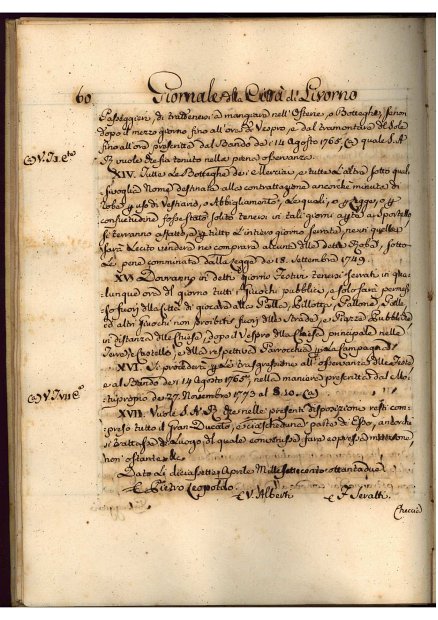 60. Giornale della Città di Livorno
Passeggieri, di trattenersi a mangiare nell'Osterie, o Botteghe, se non
dopo il mezzo giorno fino all'ore di Vespro, e dal tramontare del Sole
fino all'ore prescritte dal Bando de' 14 Agosto 1765, (a) quale S. A.
R. vuole che sia tenuto nella piena osservanza.
XIV. Tutte le Botteghe dei Merciai, e tutte l'altre sotto qual
sivoglia Nome destinate alla contrattazione ancorchè minuta di
robe uso di Vestiario, o Abbigliamento, le quali, o Legge, o
consuetudine fosse stato solito tenersi in tali giorni a Sportello
si terranno affatto, e tutto l'intiero giorno serrate, nè in quelle
sarà lecito vendere nè comprare alcune delle dette Robe, sotto
le pene comminate dalla Legge de' 18. Settembre 1749.
XV. Dovranno in detti giorni Festivi tenersi serrati in qua
lunque ora del giorno tutti i Giuochi pubblici, e solo sarà permes
so fuori della Città di giocare alla Palla, Pallone,
ed altri Giuochi non proibiti fuori delle Strade, e Piazze Pubbliche
in distanza della Chiesa, dopo il Vespro della Chiesa principale nelle
Terre, e Castella, e della respettiva Parrocchia la Campagna.
XVI. Si procederà le trasgressioni all'osservanza delle Feste
e al Bando de' 14 Agosto 1765, nella maniera prescritta dal Mo
tuproprio de' 27. Novembre 1773 al §.10. (a)
XVII. Vuole S. A. R. che nelle presenti disposizioni resti com
preso tutto il Gran Ducato, e ciascheduna parte di Esso, ancorchè
si trattasse di Luogo di quale convenisse fare espressa menzione,
non ostante &c.
Dato li diciassette Aprile Mille settecento ottantadue
Pietro Leopoldo.
V. Alberti F. Seratti